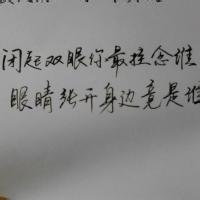 闭起双眼你最挂念谁
眼睛张开身边竟是谁